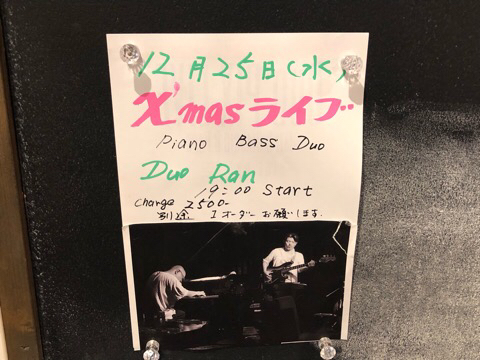 12月25日(水)
X'masライブ
Piano Bass Duo
Duo Ran
19:00 Start
Charge 2500-
別途 1オーダーお願いします.